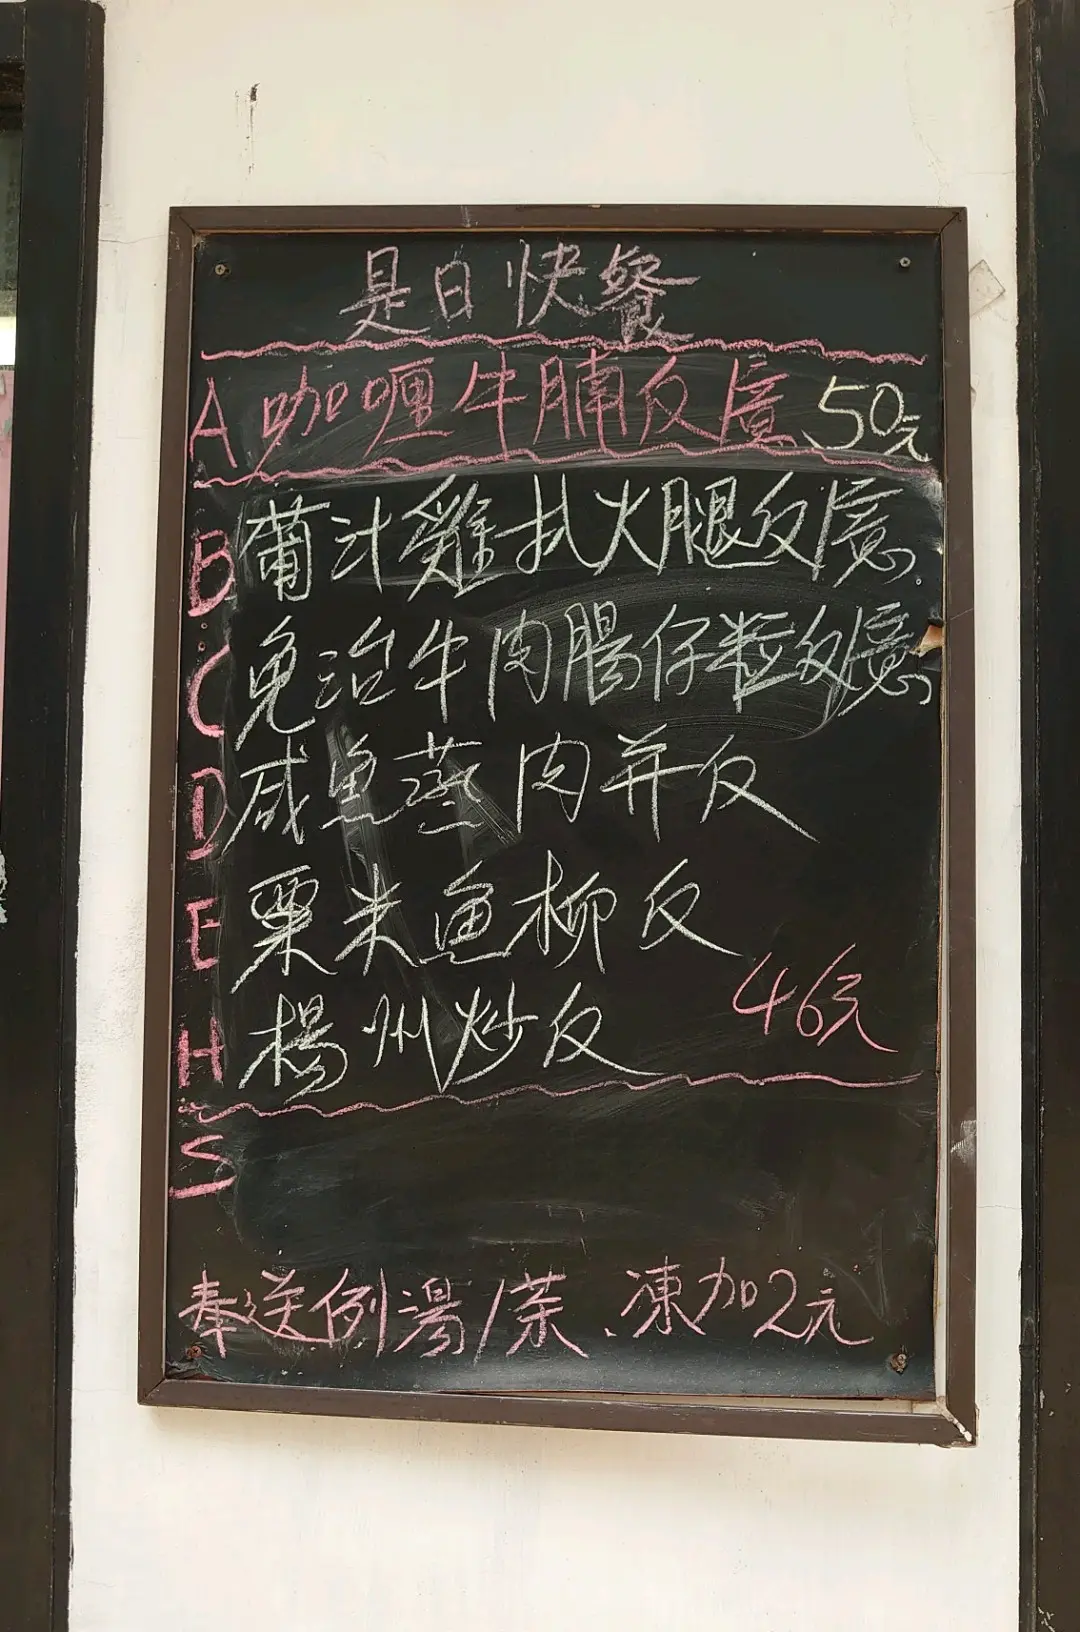 是日快餐
A 咖喱牛腩反/意 50元
B 葡汁雞扒火腿反/意
C 免治牛肉腸仔粒反/意
D 咸魚蒸肉并反
E 粟米魚柳反
46元
H 楊州炒反
S
奉送例湯/茶、凍加2元